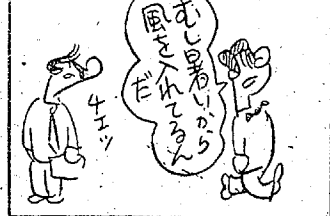 むし暑いから
風を入れてるん
だ
チエッ